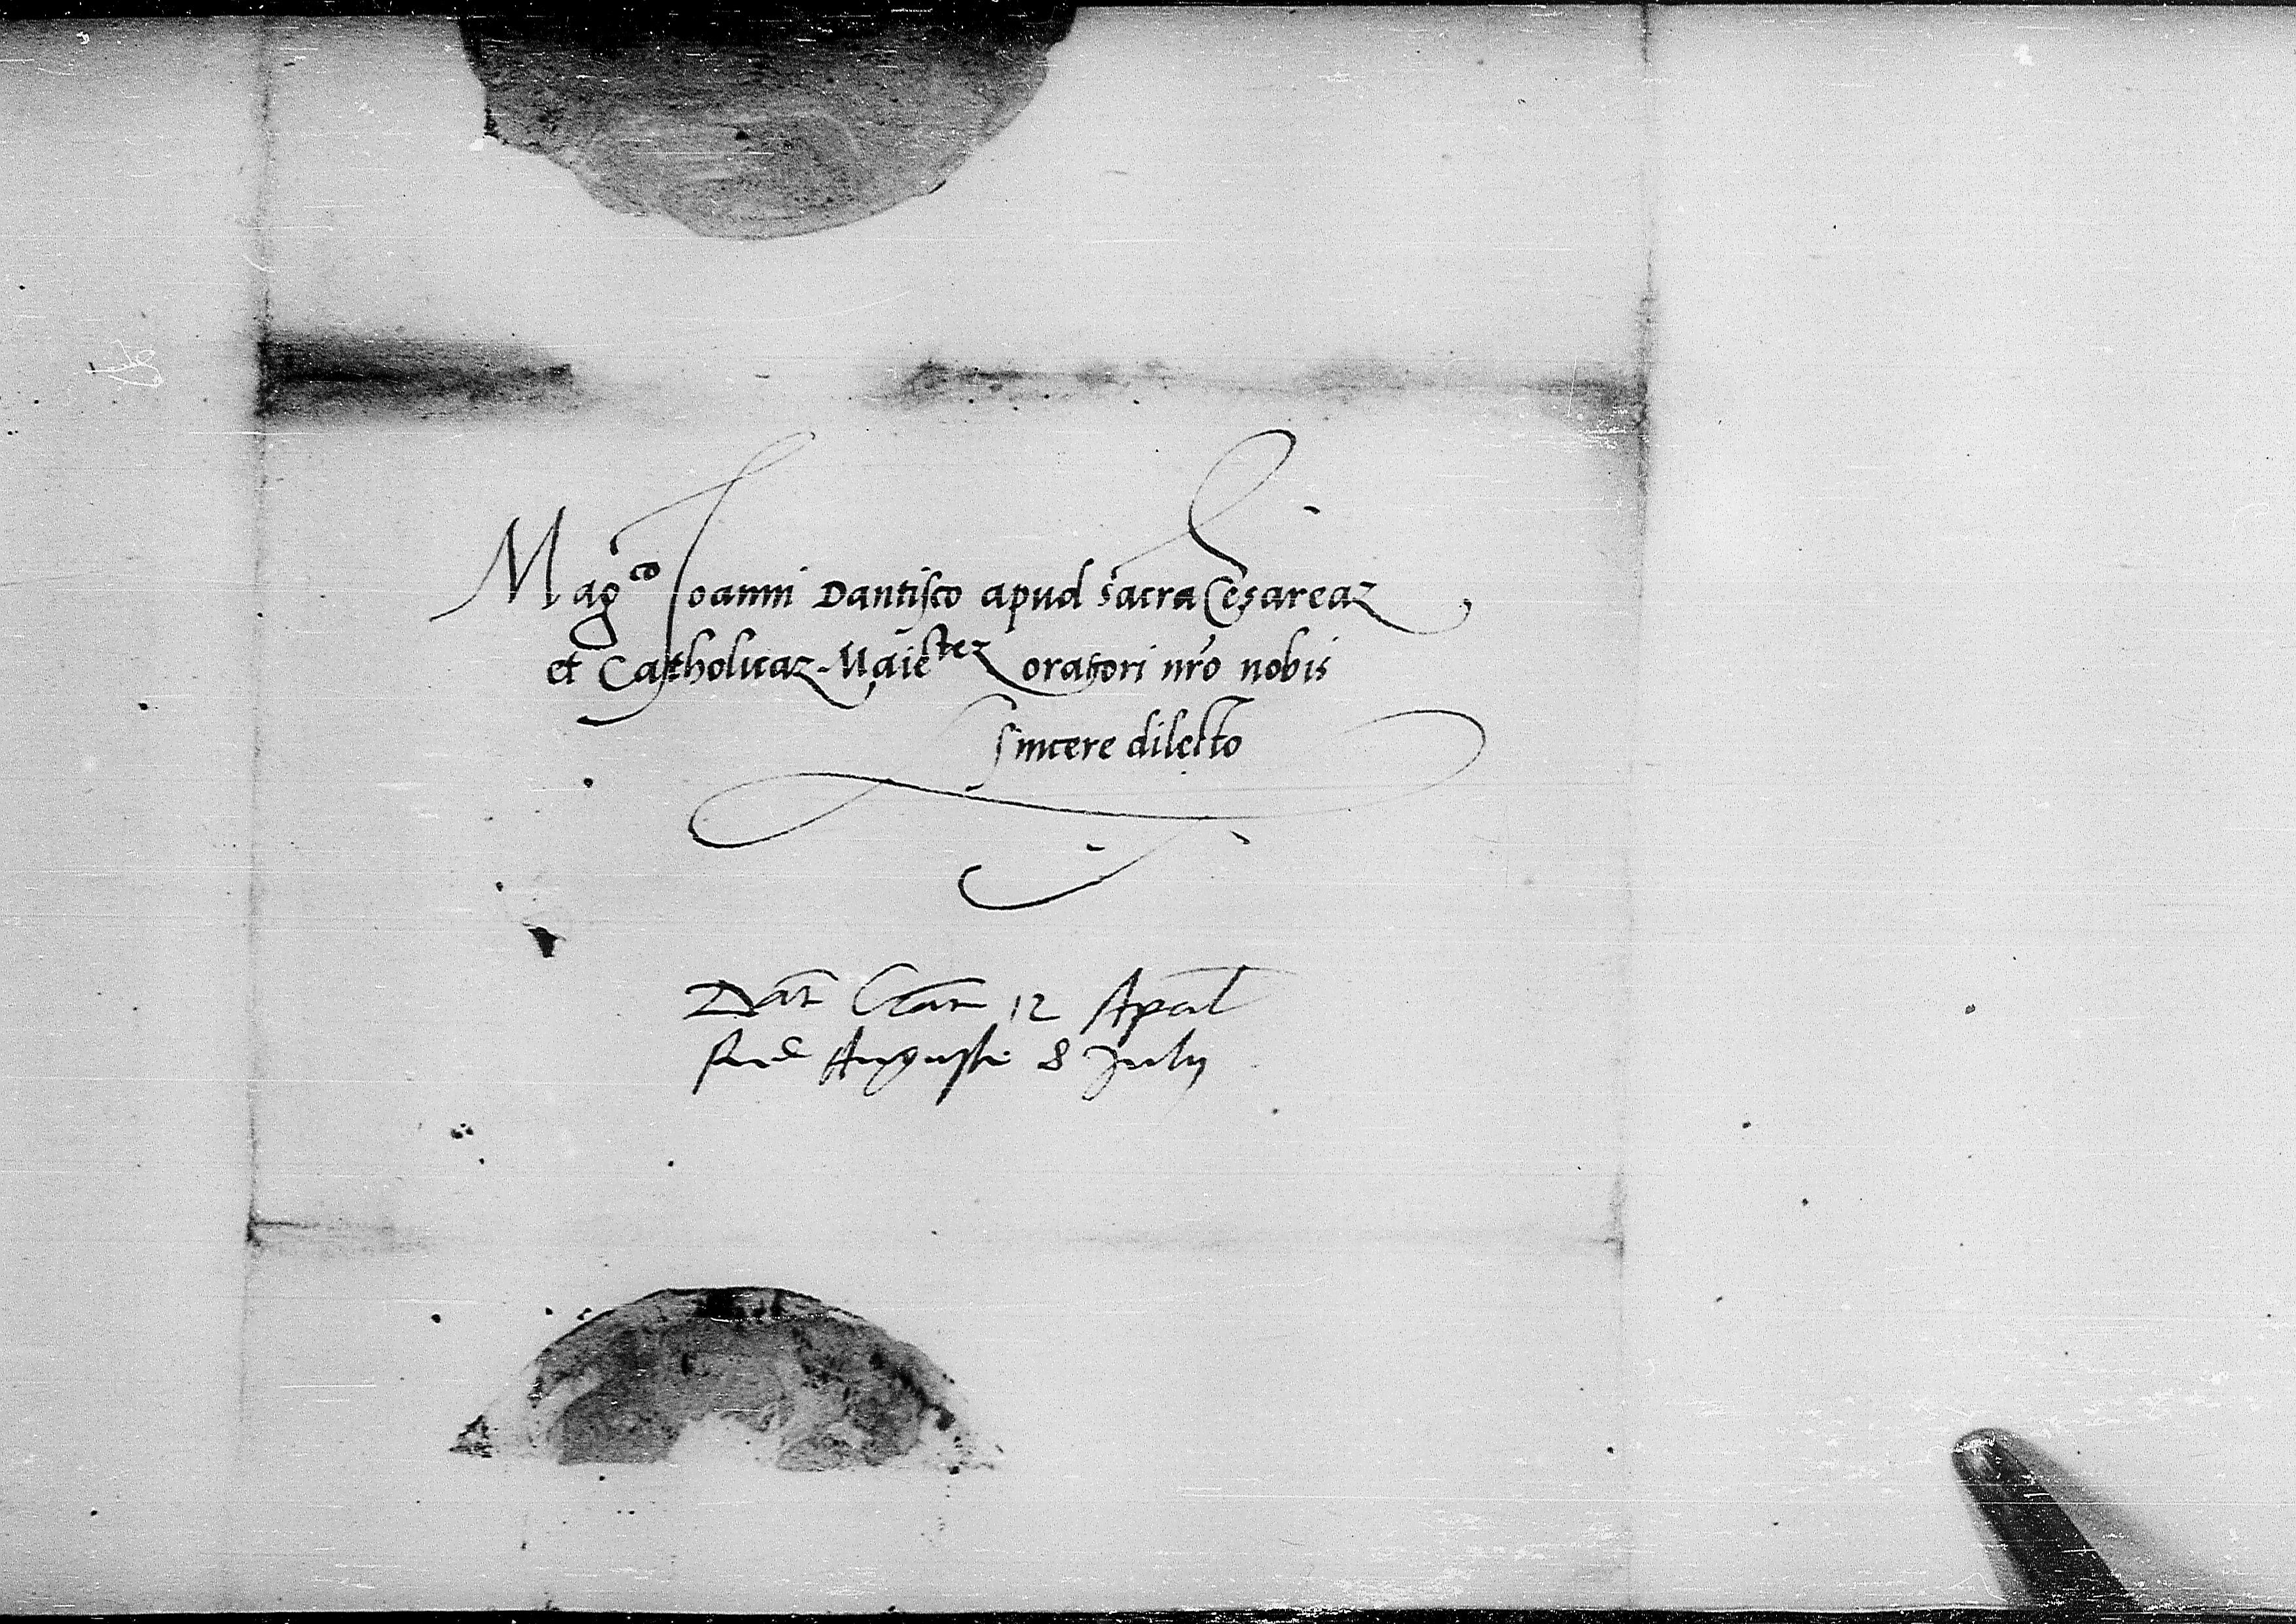 Mag^co Ioanni Dantisco apud sacrā Cesareaz
et Catholicaz Maie^stez oratori nr̃o nobis
sincere dilecto
Dat̃ Crac̃ 12 April
Red Auguste 8 July